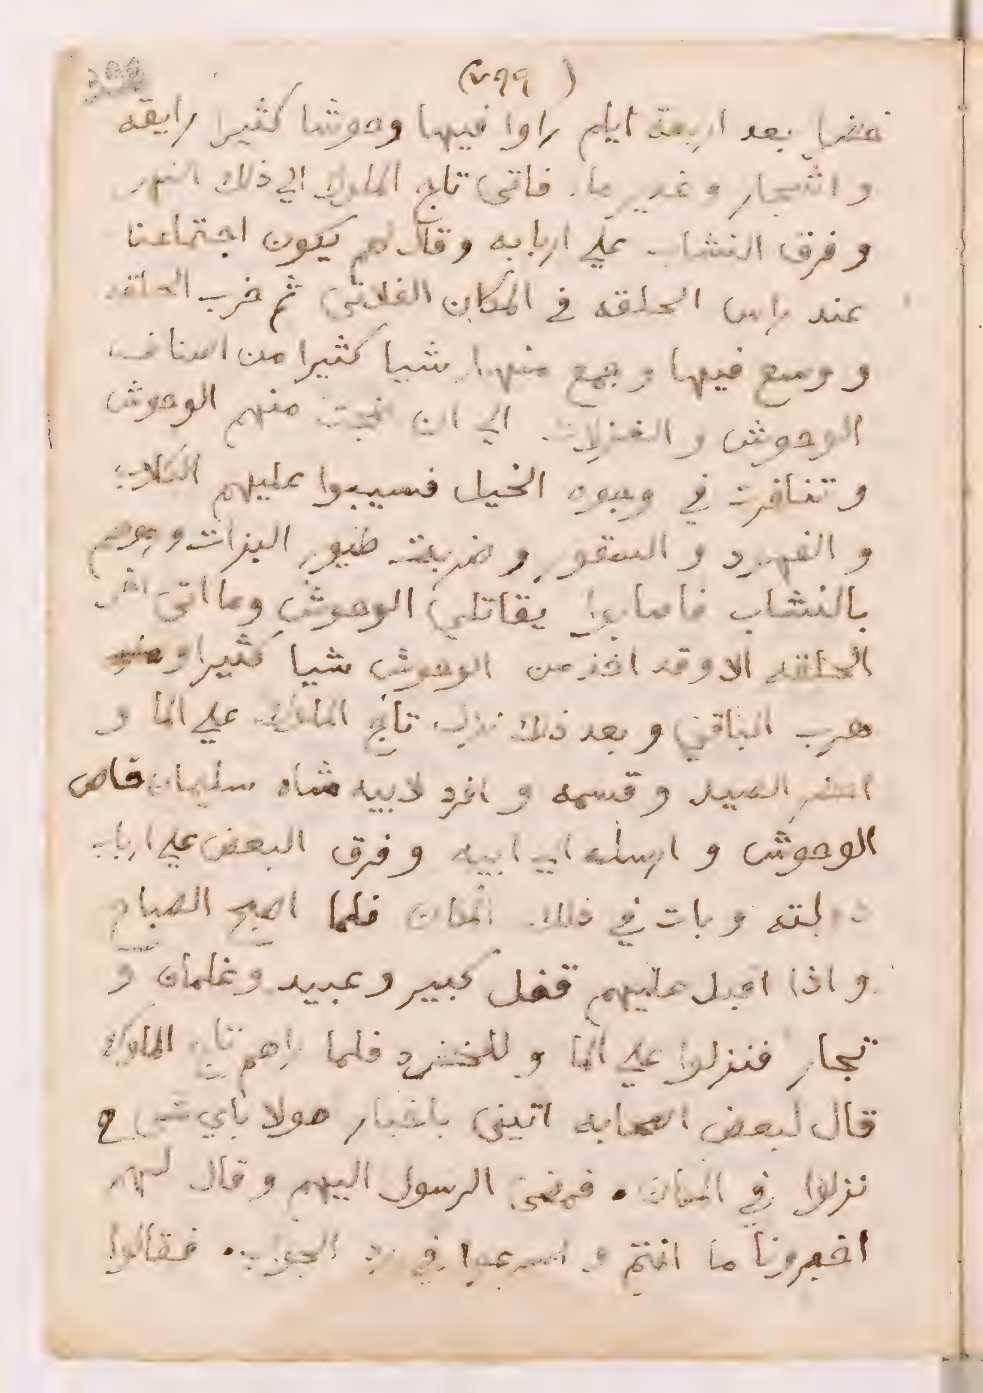 (٧٩٩)
خضرا بعد اربعة ايام راوا فيها وحوشا كثيرا رايقه
و اشجار و غدير ما. فاتى تاج الملوك الي ذلك النهر
و فرق النشاب علي اربابه وقال لهم يكون اجتماعنا
عند راس الحلقه في المكان الفلاني ثم ضرب الحلقه
و وسع فيها و جمع منها شيا كثيرا من اصناف
الوحوش و الغزلان. الي ان ضجت منهم الوحوش
و تنافرت في وجوه الخيل فسيبوا عليهم الكلاب
و الفهود و السقور و ضربت طيور البزات و
بالنشاب فاصابوا يقاتلي الوحوش وما اتى اخر
الحلقه الا وقد اخذ من الوحوش شيا كثيرا و
هرب الباقي و بعد ذلك نزل تاج الملوك علي الما و
احضر الصيد و قسمه و افرد لابيه شاه سليمان خاص
الوحوش و ارسله الي ابيه و فرق البعض علي ارباب
دولته و بات في ذلك المكان فلما اصبح الصباح
و اذا اقبل عليهم قفل كبير و عبيد و غلمان و
تجار فنزلوا علي الما و للخضره فلما راهم تاج الملوك
قال لبعض اصحابه اتيني باخبار هولا باي شي
نزلوا في المكان. فمضى الرسول اليهم و قال لهم
اخبرونا ما انتم و اسرعوا في رد الجواب. فقالوا